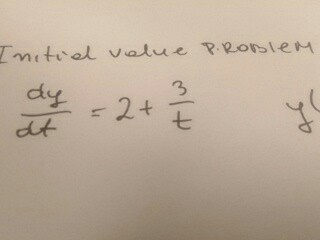 Initial value PROBLEM
dy/dt = 2 + 3/t y(